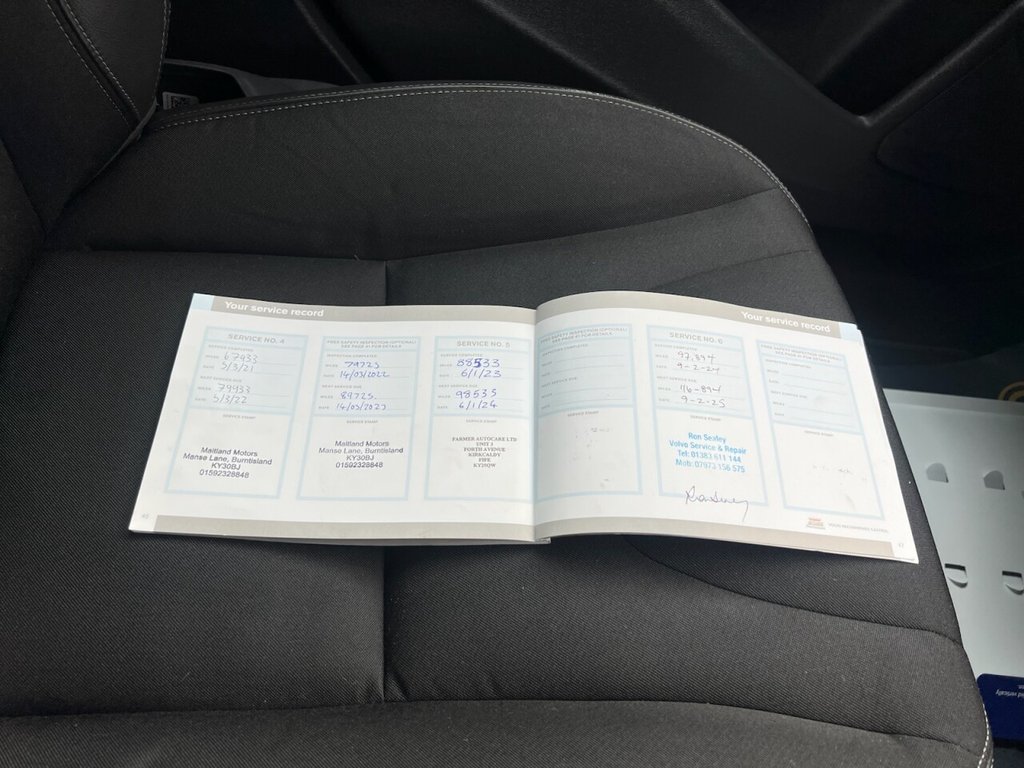 Your service record
SERVICE NO. 4
SERVICE COMPLETED
MILES 67933
DATE 5/3/21
NEXT SERVICE DUE
MILES 79933
DATE 5/3/22
SERVICE STAMP
Maitland Motors
Manse Lane, Burntisland
KY30BJ
01592328848
FREE SAFETY INSPECTION (OPTIONAL)
SEE PAGE 41 FOR DETAILS
INSPECTION COMPLETED
MILES 79725
DATE 14/03/2022
NEXT SERVICE DUE
MILES 89725
DATE 14/03/2023
SERVICE STAMP
Maitland Motors
Manse Lane, Burntisland
KY30BJ
01592328848
SERVICE NO. 5
SERVICE COMPLETED
MILES 88533
DATE 6/1/23
NEXT SERVICE DUE
MILES 98535
DATE 6/1/24
SERVICE STAMP
FARMER AUTOCARE LTD
UNIT 3
FORTH AVENUE
KIRKCALDY
FIFE
45
Your service record
FREE SAFETY INSPECTION (OPTIONAL)
SEE PAGE 41 FOR DETAILS
INSPECTION COMPLETED
MILES
DATE
NEXT SERVICE DUE
MILES
DATE
SERVICE STAMP
SERVICE NO. 6
SERVICE COMPLETED
MILES 97,894
DATE 9-2-24
NEXT SERVICE DUE
MILES
DATE 9-2-25
SERVICE STAMP
Ron Sealey
Volvo Service & Repair
Tel: 01383 611 144
Mob: 07973 156 575
FREE SAFETY INSPECTION (OPTIONAL)
SEE PAGE 41 FOR DETAILS
INSPECTION COMPLETED
MILES
DATE
NEXT SERVICE DUE
MILES
DATE
SERVICE STAMP
47